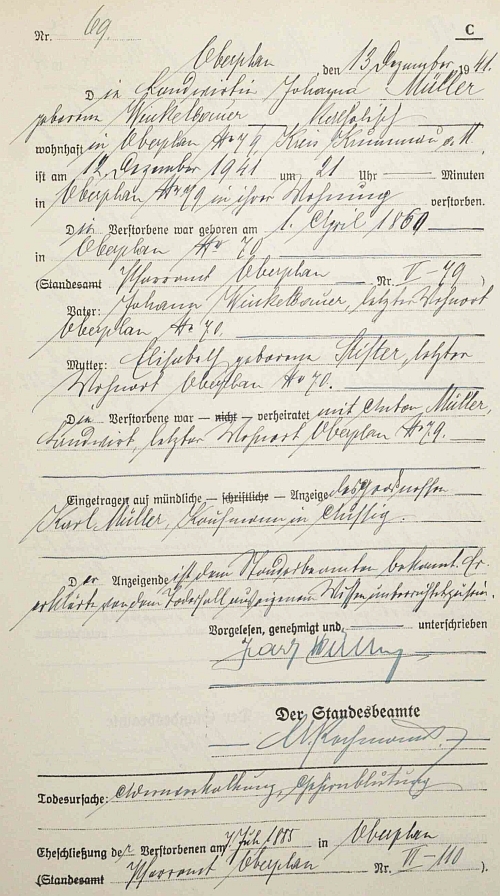 C
Nr. 69.
Oberplan den 13 Dezember 1941.
Die Landwirtin Johanna Müller
geborene Winkelbauer Katholisch
wohnhaft in Oberplan Nr 79 Kreis Krummau a. M.
ist am 12. Dezember 1941 um 21 Uhr — Minuten
in Oberplan Nr 79 in ihrer Wohnung verstorben.
Die Verstorbene war geboren am 1. April 1860
in Oberplan Nr 70
(Standesamt Pfarramt Oberplan Nr. V-49)
Vater: Johann Winkelbauer, letzter Wohnort
Oberplan Nr 70.
Mutter: Elisabeth geborene Stifter, letzter
Wohnort Oberplan Nr 70.
Die Verstorbene war — nicht — verheiratet mit Anton Müller,
Landwirt, letzter Wohnort Oberplan Nr 79.
Eingetragen auf mündliche — schriftliche — Anzeige des
Karl Müller, Kaufmann in Aussig.
Der Anzeigende ist dem Standesbeamten bekannt. Er
erklärte von dem Todesfall aus eigenem Wissen unterrichtet zu sein.
Vorgelesen, genehmigt und unterschrieben
Karl Müller
Der Standesbeamte
Todesursache: Adernverkalkung, Gehirnblutung
Eheschließung der Verstorbenen am 7. Feb. 1885 in Oberplan
(Standesamt Pfarramt Oberplan Nr. III-110).